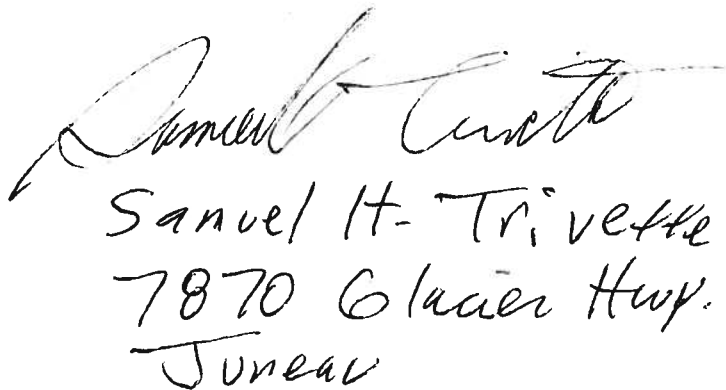 Samuel H. Trivette
Samuel H. Trivette
7870 Glacier Hwy.
Juneau